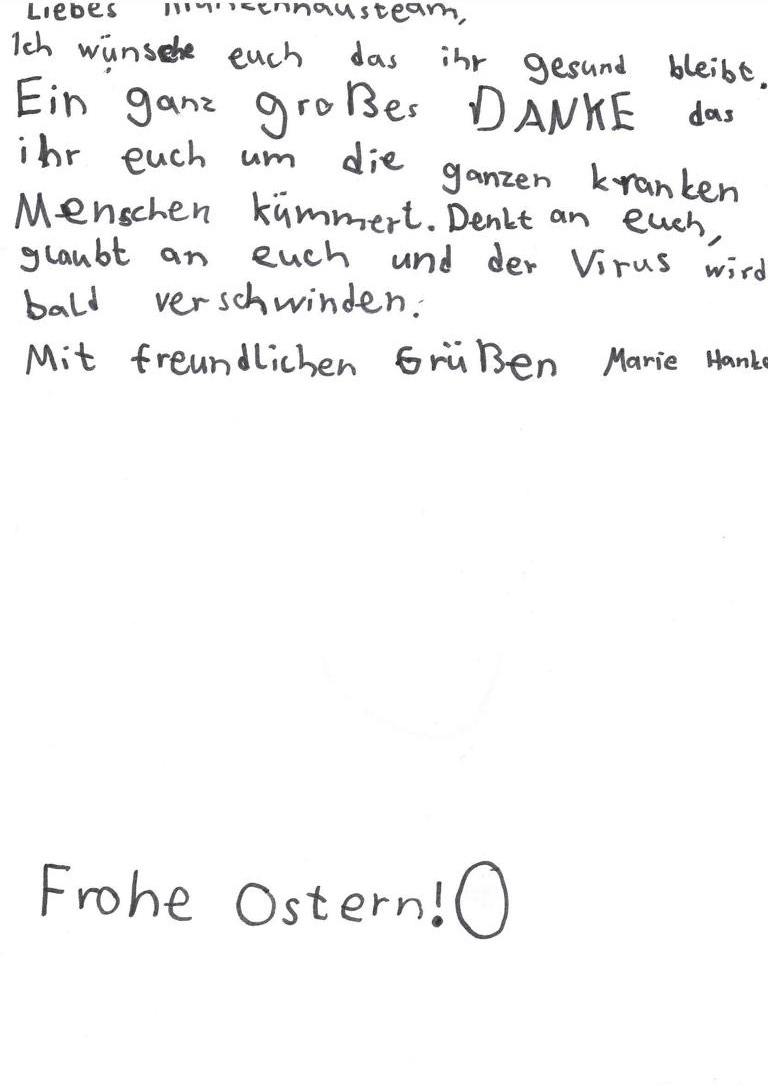 Liebes
Ich wünsche euch das ihr gesund bleibt.
Ein ganz großes DANKE das
ihr euch um die ganzen kranken
Menschen kümmert. Denkt an euch,
glaubt an euch und der Virus wird
bald verschwinden.
Mit freundlichen Grüßen Marie
Frohe Ostern!